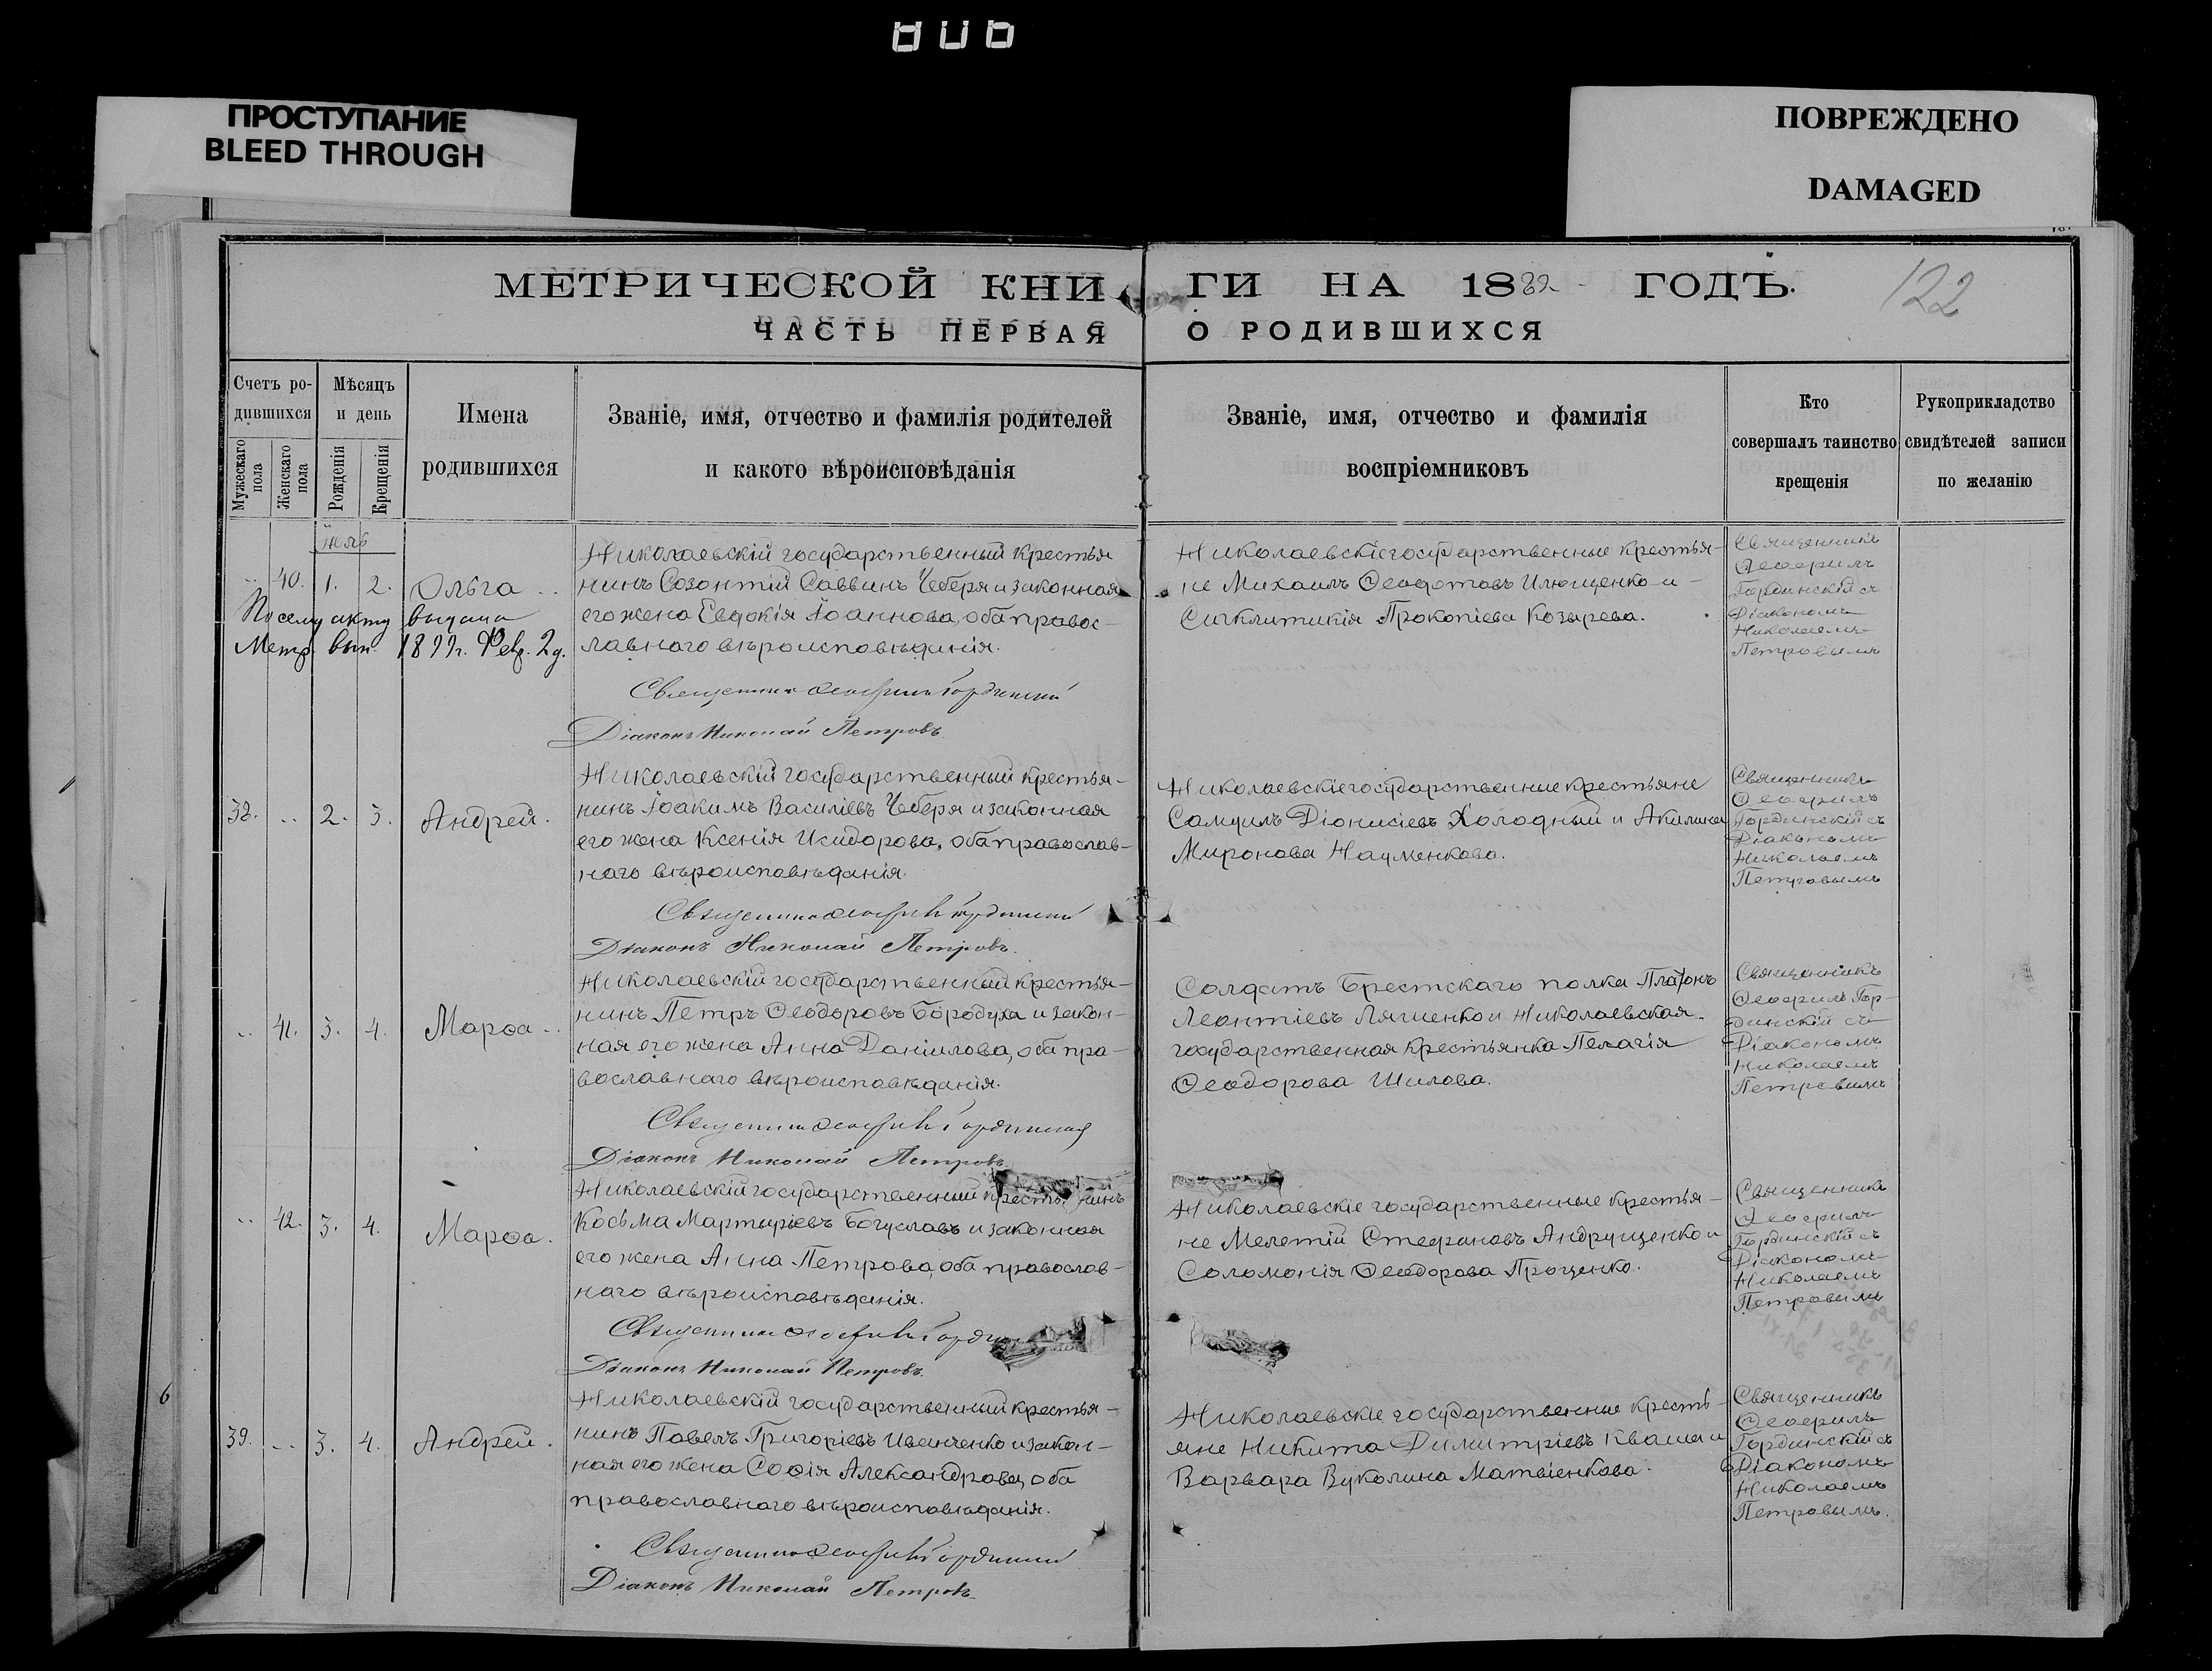 806
ПРОСТУПАНИЕ
BLEED THROUGH
ПОВРЕЖДЕНО
DAMAGED
МЕТРИЧЕСКОЙ КНИГИ НА 1882 ГОДЪ.
122
ЧАСТЬ ПЕРВАЯ О РОДИВШИХСЯ
Счетъ родившихся
Мужескаго пола
Женскаго пола
Мѣсяцъ и день
Рожденія
Крещенія
Имена родившихся
Званіе, имя, отчество и фамилія родителей
и какого вѣроисповѣданія
Званіе, имя, отчество и фамилія
воспріемниковъ
Кто
совершалъ таинство
крещенія
Рукоприкладство
свидѣтелей записи
по желанію
.. 40. 1. 2. Ольга ..
По сему акту выдана
Метр. вып. 1899 г. Февр. 2 д.
Николаевскій государственный крестья
нинъ Созонтій Саввинъ Чеберя и законная
его жена Евдокія Іоаннова, оба правос-
лавнаго вѣроисповѣданія.
Священникъ Ѳеофилъ Гординскій
Діаконъ Николай Петровъ
Николаевскіе государственные крестья-
не Михаилъ Ѳеодотовъ Илющенко и -
Сигклитикія Прокопіева Козырева.
Священникъ
Ѳеофилъ
Гординскій съ
Діакономъ
Николаемъ
Петровымъ
38. .. 2. 3. Андрей.
Николаевскій государственный крестья-
нинъ Іоакимъ Василіевъ Чеберя и законная
его жена Ксенія Исидорова, оба православ-
наго вѣроисповѣданія.
Священникъ Ѳеофилъ Гординскій
Діаконъ Николай Петровъ.
Николаевскіе государственные крестьяне
Самуилъ Діонисіевъ Холодный и Акилина
Миронова Науменкова.
Священникъ
Ѳеофилъ
Гординскій съ
Діакономъ
Николаемъ
Петровымъ
.. 41. 3. 4. Марѳа ..
Николаевскій государственный крестья-
нинъ Петръ Ѳеодоровъ Бородуха и закон-
ная его жена Анна Даніилова, оба пра-
вославнаго вѣроисповѣданія.
Священникъ Ѳеофилъ Гординскій
Діаконъ Николай Петровъ
Солдатъ Брестскаго полка Платонъ
Леонтіевъ Ляшенко и Николаевская
государственная крестьянка Пелагія
Ѳеодорова Шилова.
Священникъ
Ѳеофилъ Гор-
динскій съ
Діакономъ
Николаемъ
Петровымъ
.. 42. 3. 4. Марѳа.
Николаевскій государственный крестьянинъ
Косьма Мартиріевъ Богуславъ и законная
его жена Анна Петрова, оба православ-
наго вѣроисповѣданія.
Священникъ Ѳеофилъ Горди
Діаконъ Николай Петровъ.
Николаевскіе государственные крестья-
не Мелетій Стефановъ Андрущенко и
Соломонія Ѳеодорова Проценко.
Священникъ
Ѳеофилъ
Гординскій съ
Діакономъ
Николаемъ
Петровымъ
6
39. .. 3. 4. Андрей.
Николаевскій государственный крестья-
нинъ Павелъ Григоріевъ Иванченко и закон-
ная его жена Софія Александрова, оба
православнаго вѣроисповѣданія.
Священникъ Ѳеофилъ Гординскій
Діаконъ Николай Петровъ.
Николаевскіе государственные кресть-
яне Никита Димитріевъ Кваша и
Варвара Вуколина Матвіенкова.
Священникъ
Ѳеофилъ
Гординскій съ
Діакономъ
Николаемъ
Петровымъ.